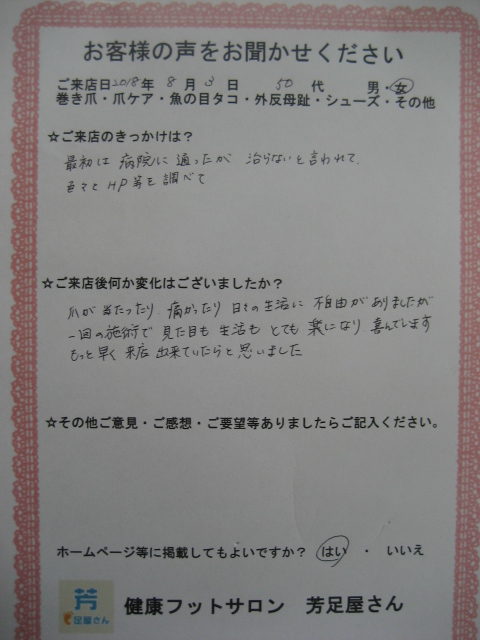 お客様の声をお聞かせください
ご来店日2018年 8月 3日 50代 男・女
巻き爪・爪ケア・魚の目タコ・外反母趾・シューズ・その他
☆ご来店のきっかけは?
最初は 病院に 通ったが 治らないと言われて、
色々と HP等を調べて
☆ご来店後何か変化はございましたか?
爪が当たったり 痛かったり 日々の生活に 不自由がありましたが
一回の施術で 見た目も 生活も とても 楽になり 喜んでいます
もっと早く 来店 出来ていたらと思いました
☆その他ご意見・ご感想・ご要望等ありましたらご記入ください。
ホームページ等に掲載してもよいですか? はい ・ いいえ
芳
足屋さん
健康フットサロン 芳足屋さん